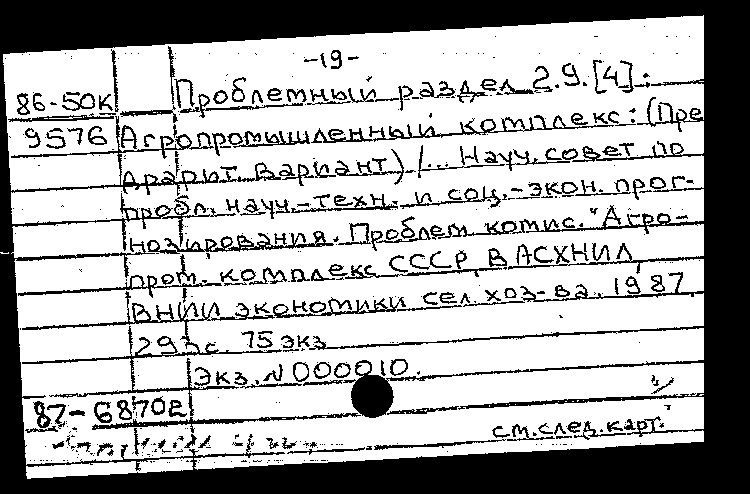 -19-
86-50к Проблемный раздел 2.9.[4]:
9576 Агропромышленный комплекс: (Пре
дварит. вариант) /... Науч. совет по
пробл. науч.-техн. и соц.-экон. прог-
нозирования. Проблем. комис. "Агро-
пром. комплекс СССР, ВАСХНИЛ,
ВНИИ экономики сел. хоз-ва. 1987.
293с. 75 экз
Экз. N 000010.
87-68702
см. след. карт.